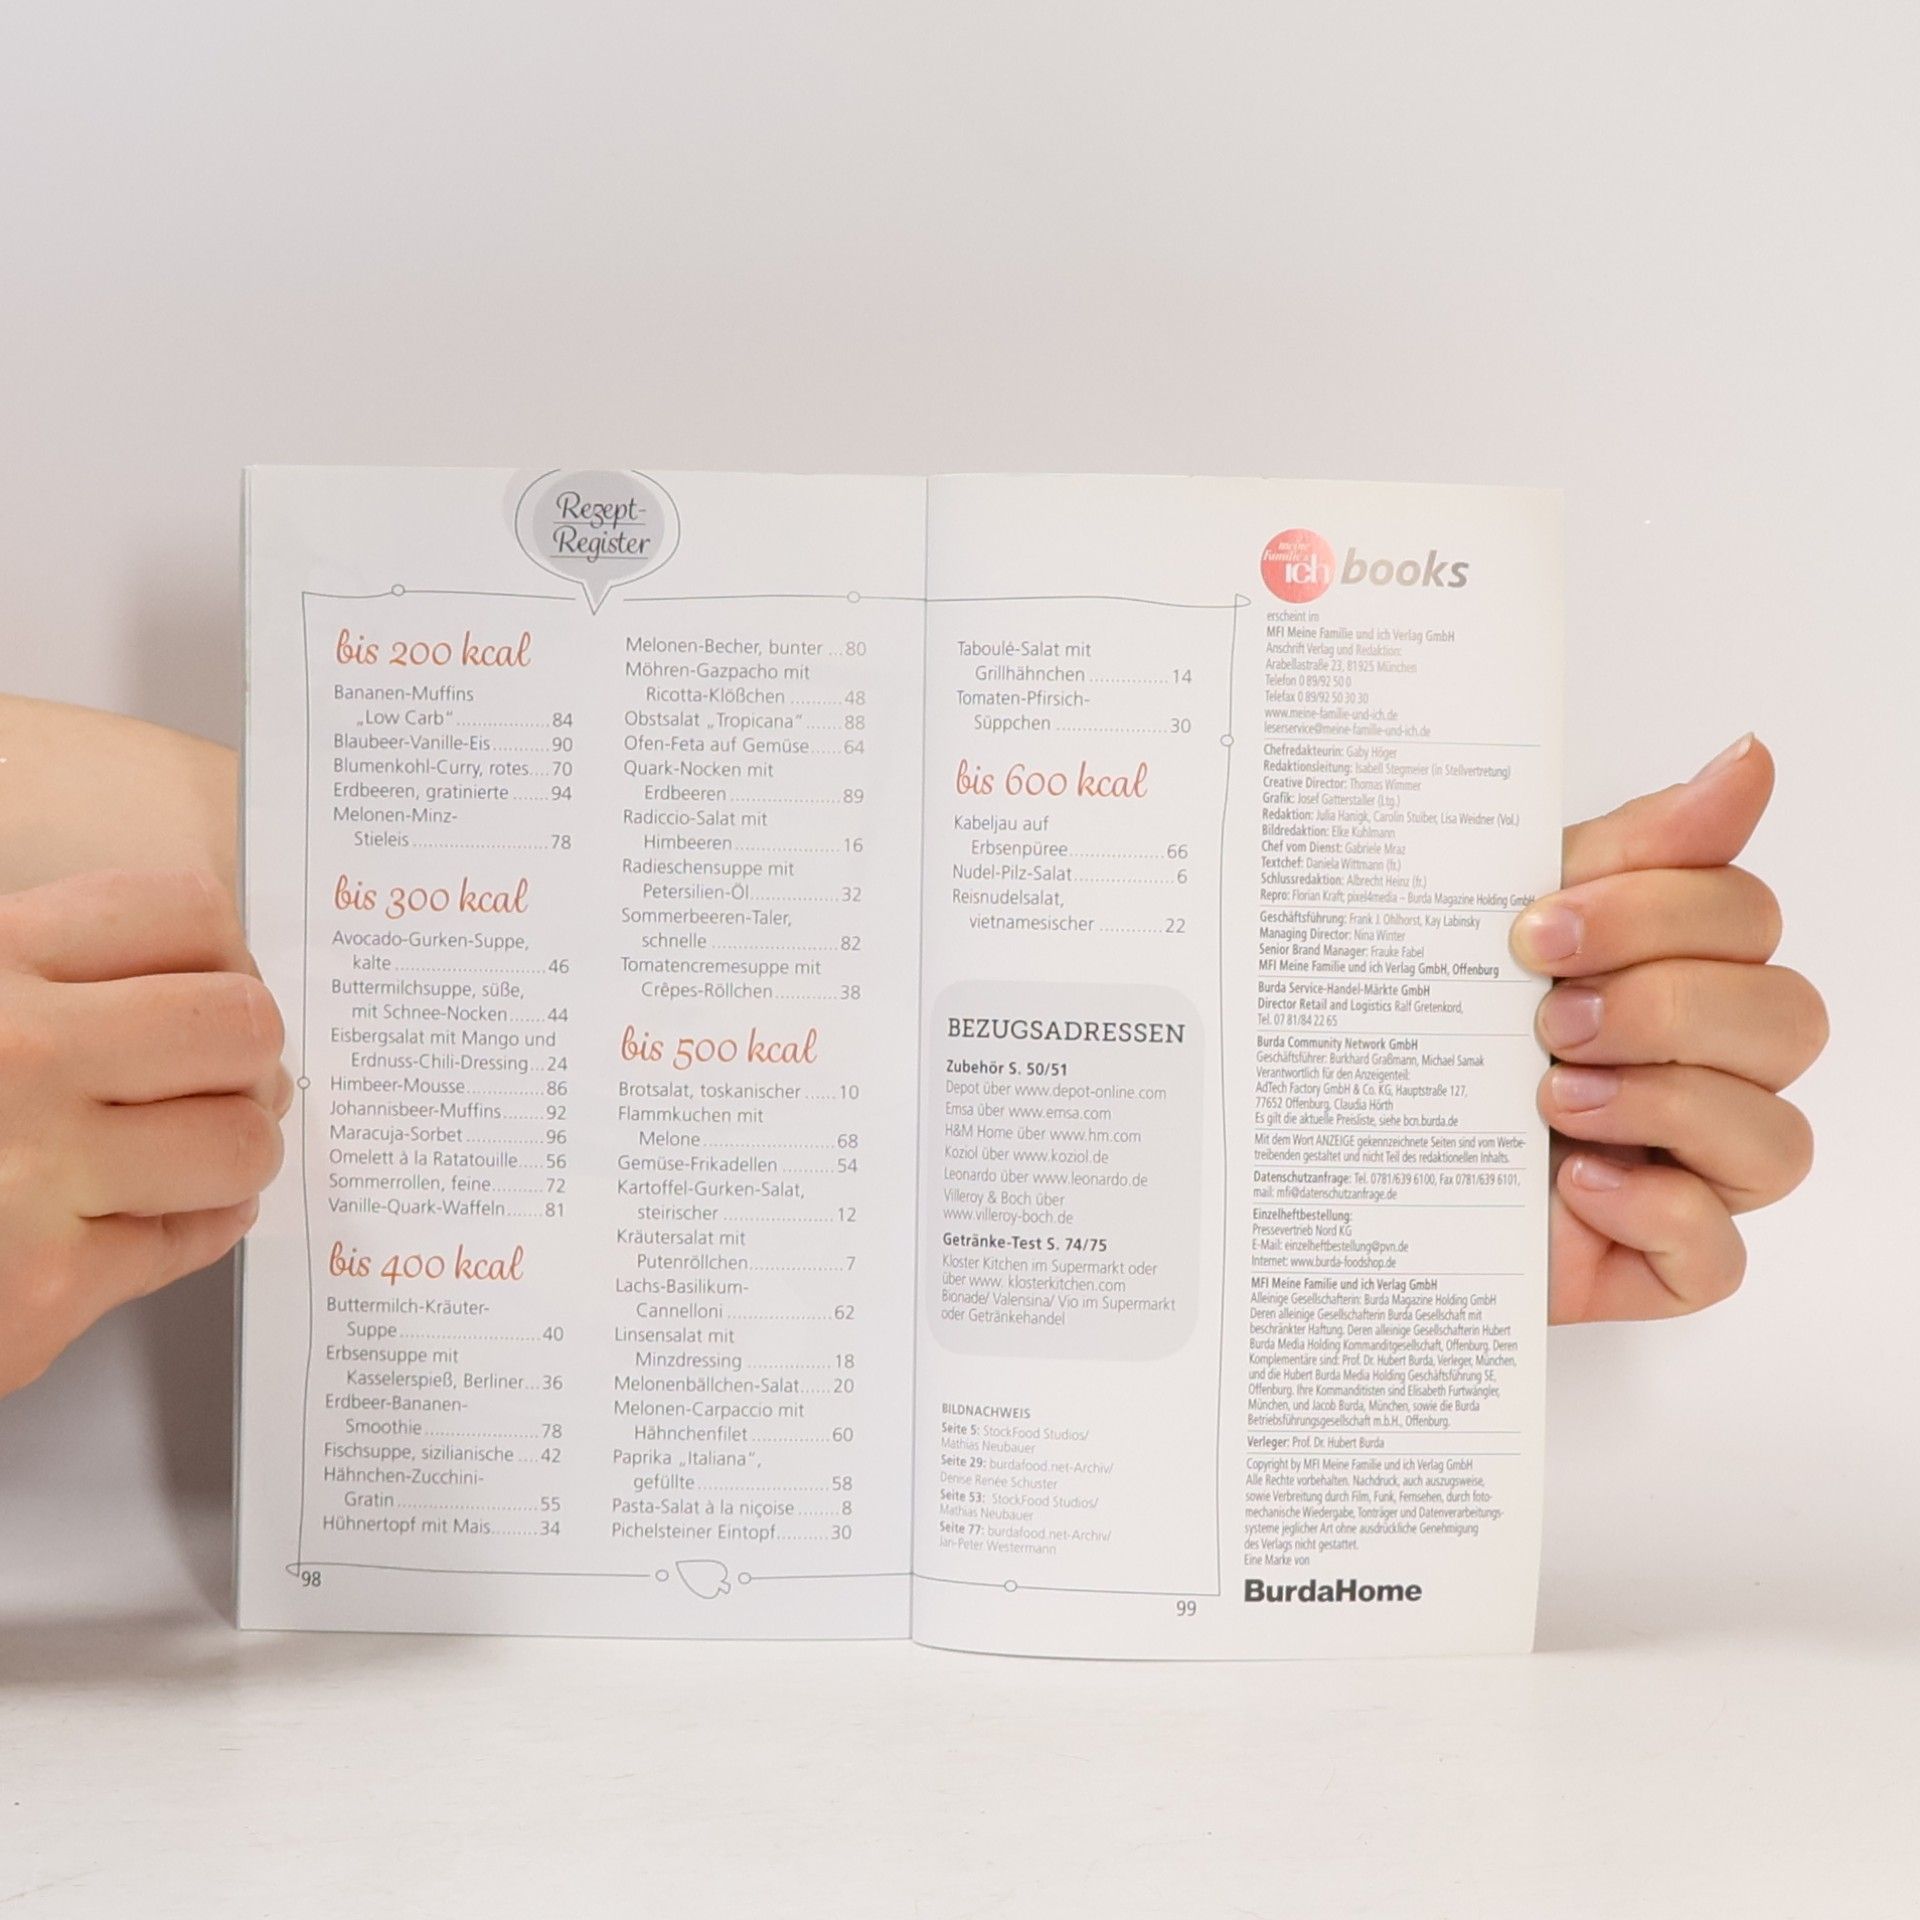 Rezept-
Register
bis 200 kcal
Bananen-Muffins
„Low Carb“ .................... 84
Blaubeer-Vanille-Eis .......... 90
Blumenkohl-Curry, rotes .... 70
Erdbeeren, gratinierte ....... 94
Melonen-Minz-
Stieleis ........................... 78
bis 300 kcal
Avocado-Gurken-Suppe,
kalte .............................. 46
Buttermilchsuppe, süße,
mit Schnee-Nocken ....... 44
Eisbergsalat mit Mango und
Erdnuss-Chili-Dressing ... 24
Himbeer-Mousse ............... 86
Johannisbeer-Muffins ........ 92
Maracuja-Sorbet ............... 96
Omelett à la Ratatouille ..... 56
Sommerrollen, feine .......... 72
Vanille-Quark-Waffeln ....... 81
bis 400 kcal
Buttermilch-Kräuter-
Suppe ............................ 40
Erbsensuppe mit
Kasselerspieß, Berliner ... 36
Erdbeer-Bananen-
Smoothie ....................... 78
Fischsuppe, sizilianische .... 42
Hähnchen-Zucchini-
Gratin ............................ 55
Hühnertopf mit Mais ......... 34
Melonen-Becher, bunter ... 80
Möhren-Gazpacho mit
Ricotta-Klößchen .......... 48
Obstsalat „Tropicana“ ....... 88
Ofen-Feta auf Gemüse ...... 64
Quark-Nocken mit
Erdbeeren ...................... 89
Radiccio-Salat mit
Himbeeren ..................... 16
Radieschensuppe mit
Petersilien-Öl .................. 32
Sommerbeeren-Taler,
schnelle ......................... 82
Tomatencremesuppe mit
Crêpes-Röllchen ............ 38
bis 500 kcal
Brotsalat, toskanischer ...... 10
Flammkuchen mit
Melone .......................... 68
Gemüse-Frikadellen .......... 54
Kartoffel-Gurken-Salat,
steirischer ...................... 12
Kräutersalat mit
Putenröllchen ................... 7
Lachs-Basilikum-
Cannelloni ..................... 62
Linsensalat mit
Minzdressing ................. 18
Melonenbällchen-Salat ...... 20
Melonen-Carpaccio mit
Hähnchenfilet ................ 60
Paprika „Italiana“,
gefüllte .......................... 58
Pasta-Salat à la niçoise ........ 8
Pichelsteiner Eintopf .......... 30
98
Taboulé-Salat mit
Grillhähnchen ............... 14
Tomaten-Pfirsich-
Süppchen ..................... 30
bis 600 kcal
Kabeljau auf
Erbsenpüree .................. 66
Nudel-Pilz-Salat ................... 6
Reisnudelsalat,
vietnamesischer ............ 22
BEZUGSADRESSEN
Zubehör S. 50/51
Depot über www.depot-online.com
Emsa über www.emsa.com
H&M Home über www.hm.com
Koziol über www.koziol.de
Leonardo über www.leonardo.de
Villeroy & Boch über
www.villeroy-boch.de
Getränke-Test S. 74/75
Kloster Kitchen im Supermarkt oder
über www. klosterkitchen.com
Bionade/ Valensina/ Vio im Supermarkt
oder Getränkehandel
BILDNACHWEIS
Seite 5: StockFood Studios/
Mathias Neubauer
Seite 29: burdafood.net-Archiv/
Denise Renée Schuster
Seite 53: StockFood Studios/
Mathias Neubauer
Seite 77: burdafood.net-Archiv/
Jan-Peter Westermann
99
meine
Familie &
ich books
erscheint im
MFI Meine Familie und ich Verlag GmbH
Anschrift Verlag und Redaktion:
Arabellastraße 23, 81925 München
Telefon 0 89/92 50 0
Telefax 0 89/92 50 30 30
www.meine-familie-und-ich.de
leserservice@meine-familie-und-ich.de
Chefredakteurin: Gaby Höger
Redaktionsleitung: Isabell Stegmeier (in Stellvertretung)
Creative Director: Thomas Wimmer
Grafik: Josef Gatterstaller (Ltg.)
Redaktion: Julia Hanigk, Carolin Stuiber, Lisa Weidner (Vol.)
Bildredaktion: Elke Kuhlmann
Chef vom Dienst: Gabriele Mraz
Textchef: Daniela Wittmann (fr.)
Schlussredaktion: Albrecht Heinz (fr.)
Repro: Florian Kraft, pixel4media – Burda Magazine Holding GmbH
Geschäftsführung: Frank J. Ohlhorst, Kay Labinsky
Managing Director: Nina Winter
Senior Brand Manager: Frauke Fabel
MFI Meine Familie und ich Verlag GmbH, Offenburg
Burda Service-Handel-Märkte GmbH
Director Retail and Logistics Ralf Gretenkord,
Tel. 07 81/84 22 65
Burda Community Network GmbH
Geschäftsführer: Burkhard Graßmann, Michael Samak
Verantwortlich für den Anzeigenteil:
AdTech Factory GmbH & Co. KG, Hauptstraße 127,
77652 Offenburg, Claudia Hörth
Es gilt die aktuelle Preisliste, siehe bcn.burda.de
Mit dem Wort ANZEIGE gekennzeichnete Seiten sind vom Werbe-
treibenden gestaltet und nicht Teil des redaktionellen Inhalts.
Datenschutzanfrage: Tel. 0781/639 6100, Fax 0781/639 6101,
mail: mfi@datenschutzanfrage.de
Einzelheftbestellung:
Pressevertrieb Nord KG
E-Mail: einzelheftbestellung@pvn.de
Internet: www.burda-foodshop.de
MFI Meine Familie und ich Verlag GmbH
Alleinige Gesellschafterin: Burda Magazine Holding GmbH
Deren alleinige Gesellschafterin Burda Gesellschaft mit
beschränkter Haftung. Deren alleinige Gesellschafterin Hubert
Burda Media Holding Kommanditgesellschaft, Offenburg. Deren
Komplementäre sind: Prof. Dr. Hubert Burda, Verleger, München,
und die Hubert Burda Media Holding Geschäftsführung SE,
Offenburg. Ihre Kommanditisten sind Elisabeth Furtwängler,
München, und Jacob Burda, München, sowie die Burda
Betriebsführungsgesellschaft m.b.H., Offenburg.
Verleger: Prof. Dr. Hubert Burda
Copyright by MFI Meine Familie und ich Verlag GmbH
Alle Rechte vorbehalten. Nachdruck, auch auszugsweise,
sowie Verbreitung durch Film, Funk, Fernsehen, durch foto-
mechanische Wiedergabe, Tonträger und Datenverarbeitungs-
systeme jeglicher Art ohne ausdrückliche Genehmigung
des Verlags nicht gestattet.
Eine Marke von
BurdaHome